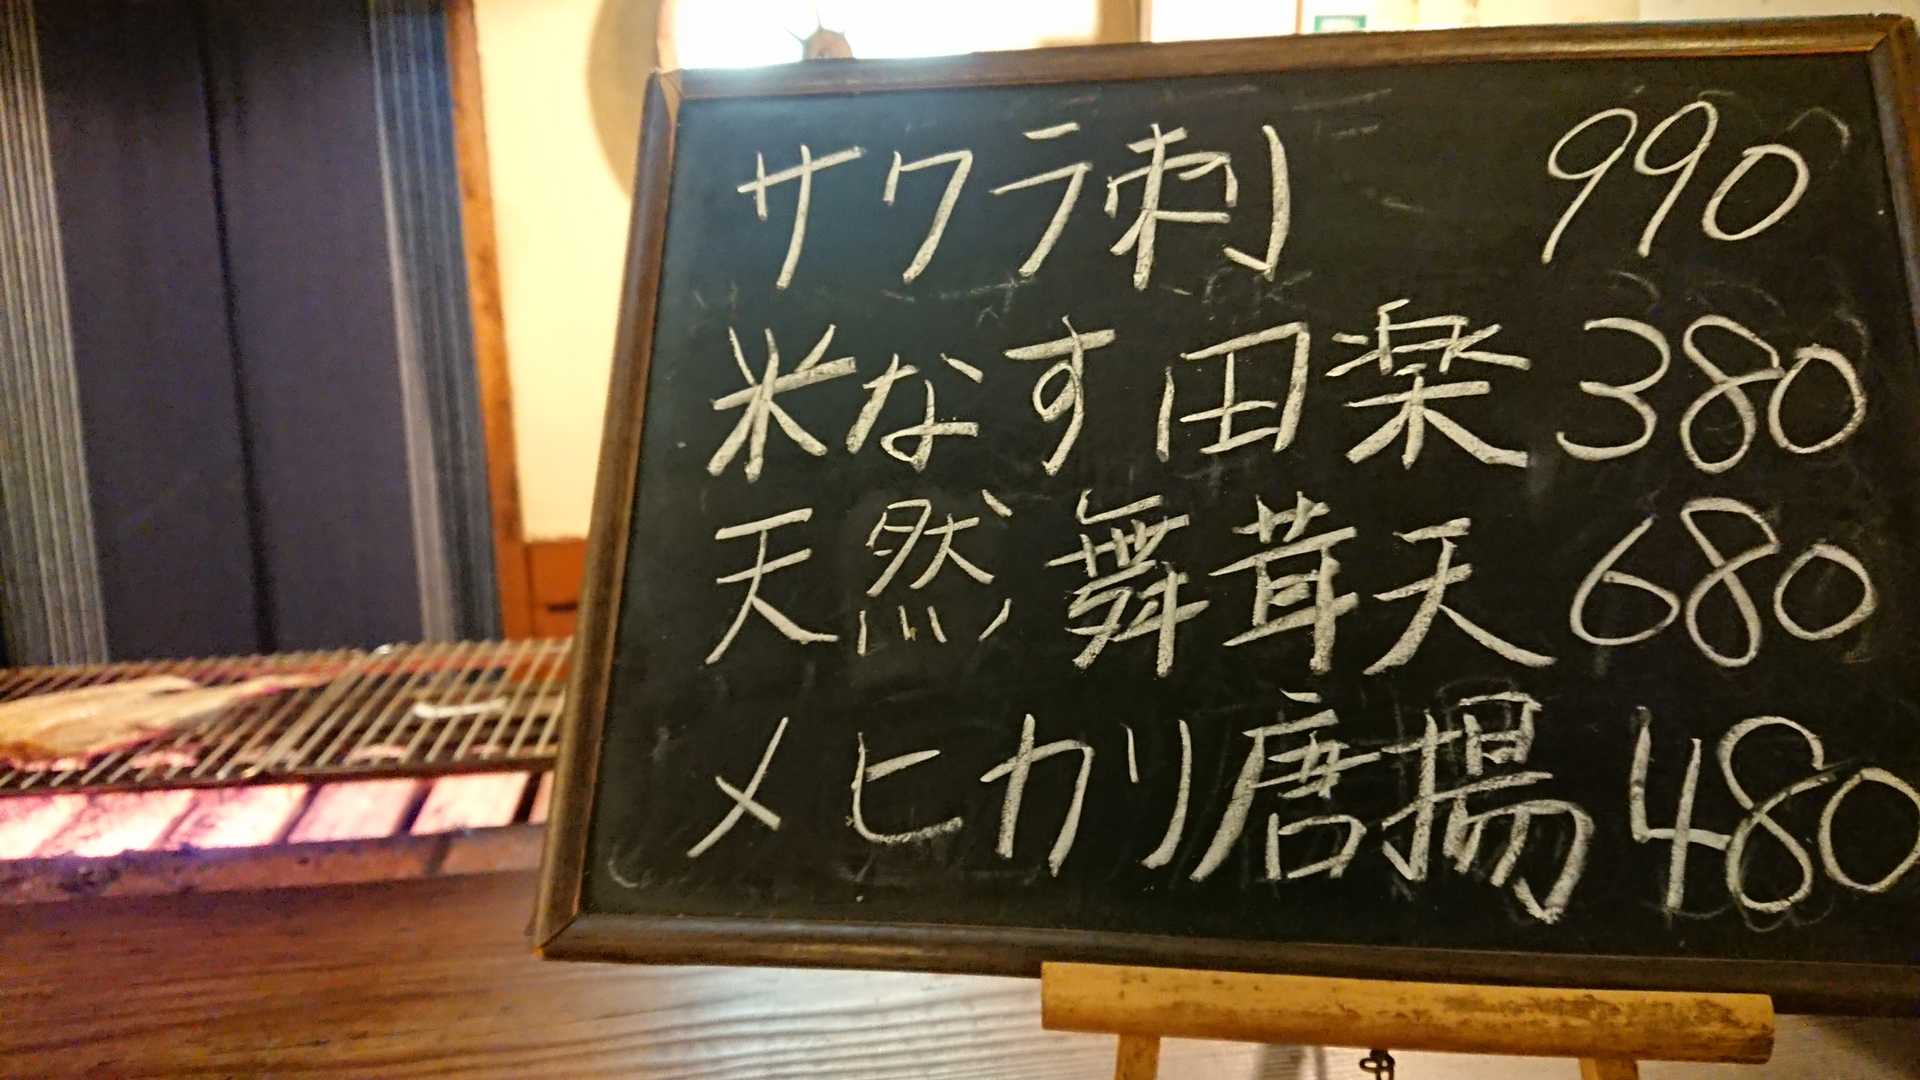 サクラ刺 990
米なす田楽 380
天然舞茸天 680
メヒカリ唐揚 480